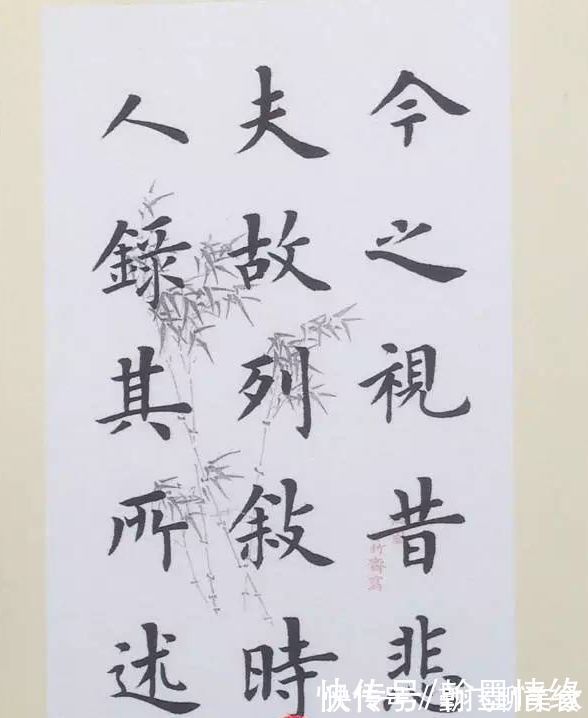 今之視昔悲
夫故列敍時
人錄其所述
竹齋寫
快传号/翰墨情缘